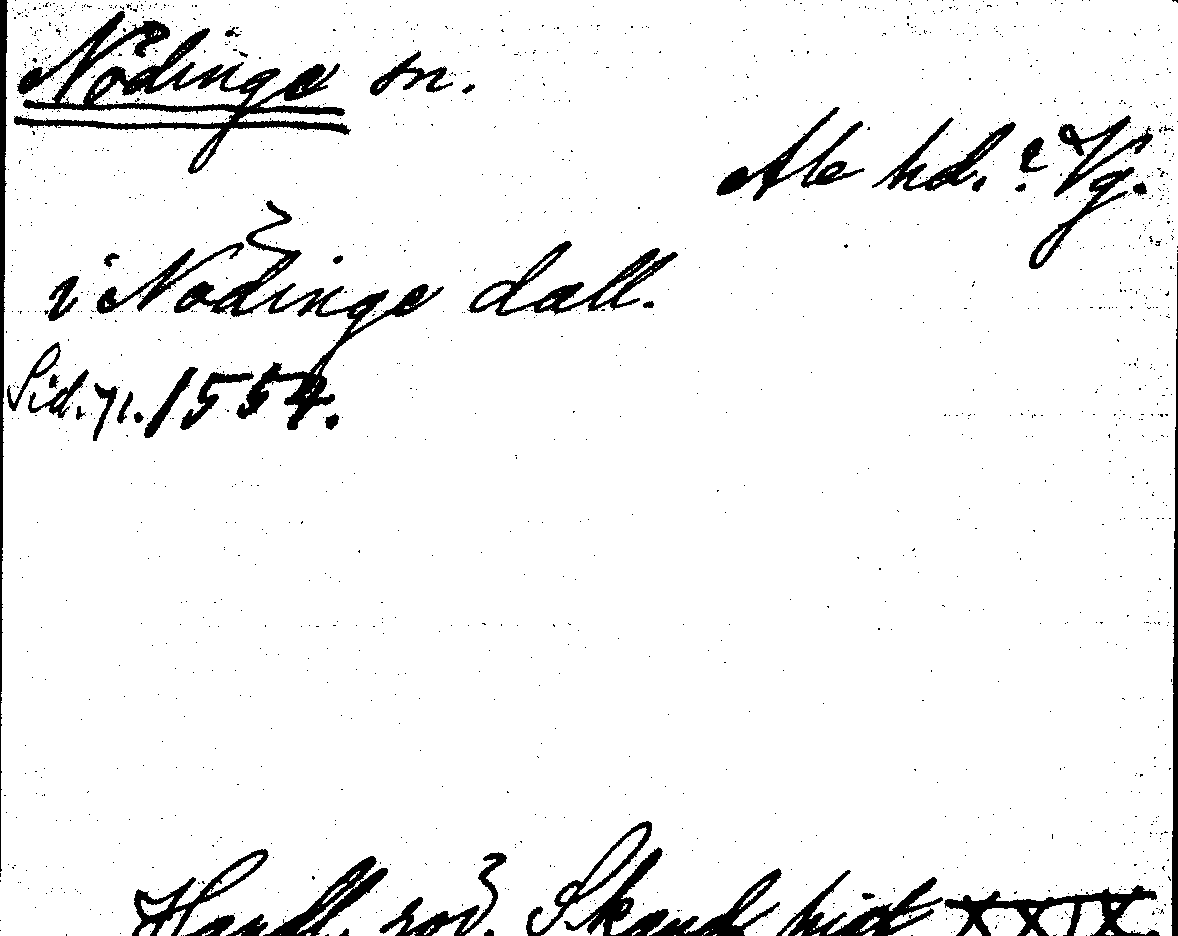 Nödinge sn.
Ale hd.? Vg.
i Nödinge dall.
Sid. 71. 1554.
Handl. rör. Skand. hist XXIX.